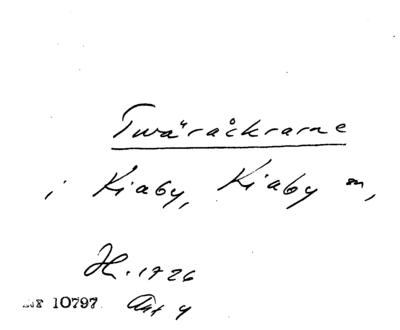 Twäråkrarne
i Kiaby, Kiaby sn,
Hl. 1926
10797 Akt 4